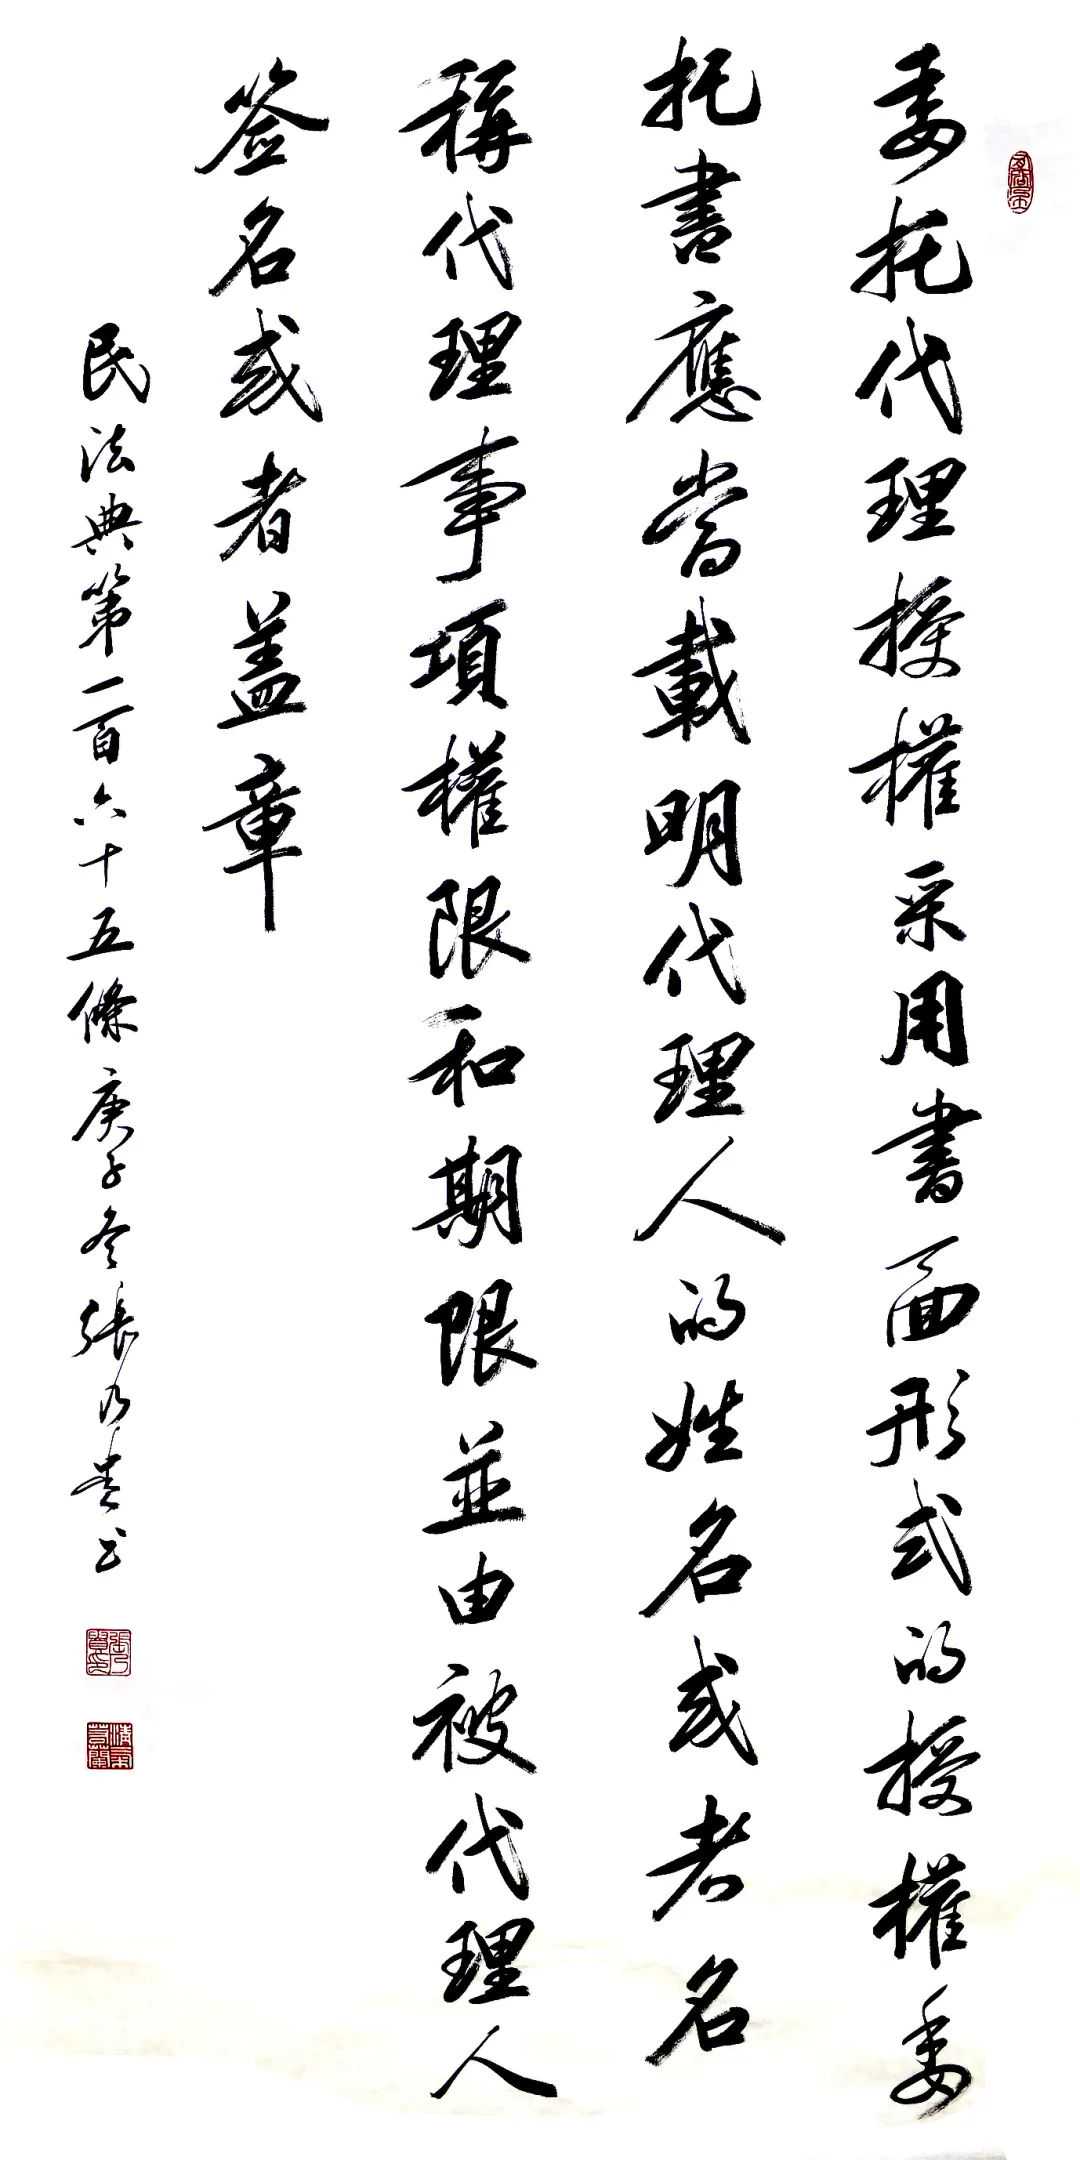 委托代理授權采用書面形式的授權委
托書應當載明代理人的姓名或者名
稱代理事項權限和期限並由被代理人
签名或者盖章
民法典第一百六十五條庚子冬張乃贵书